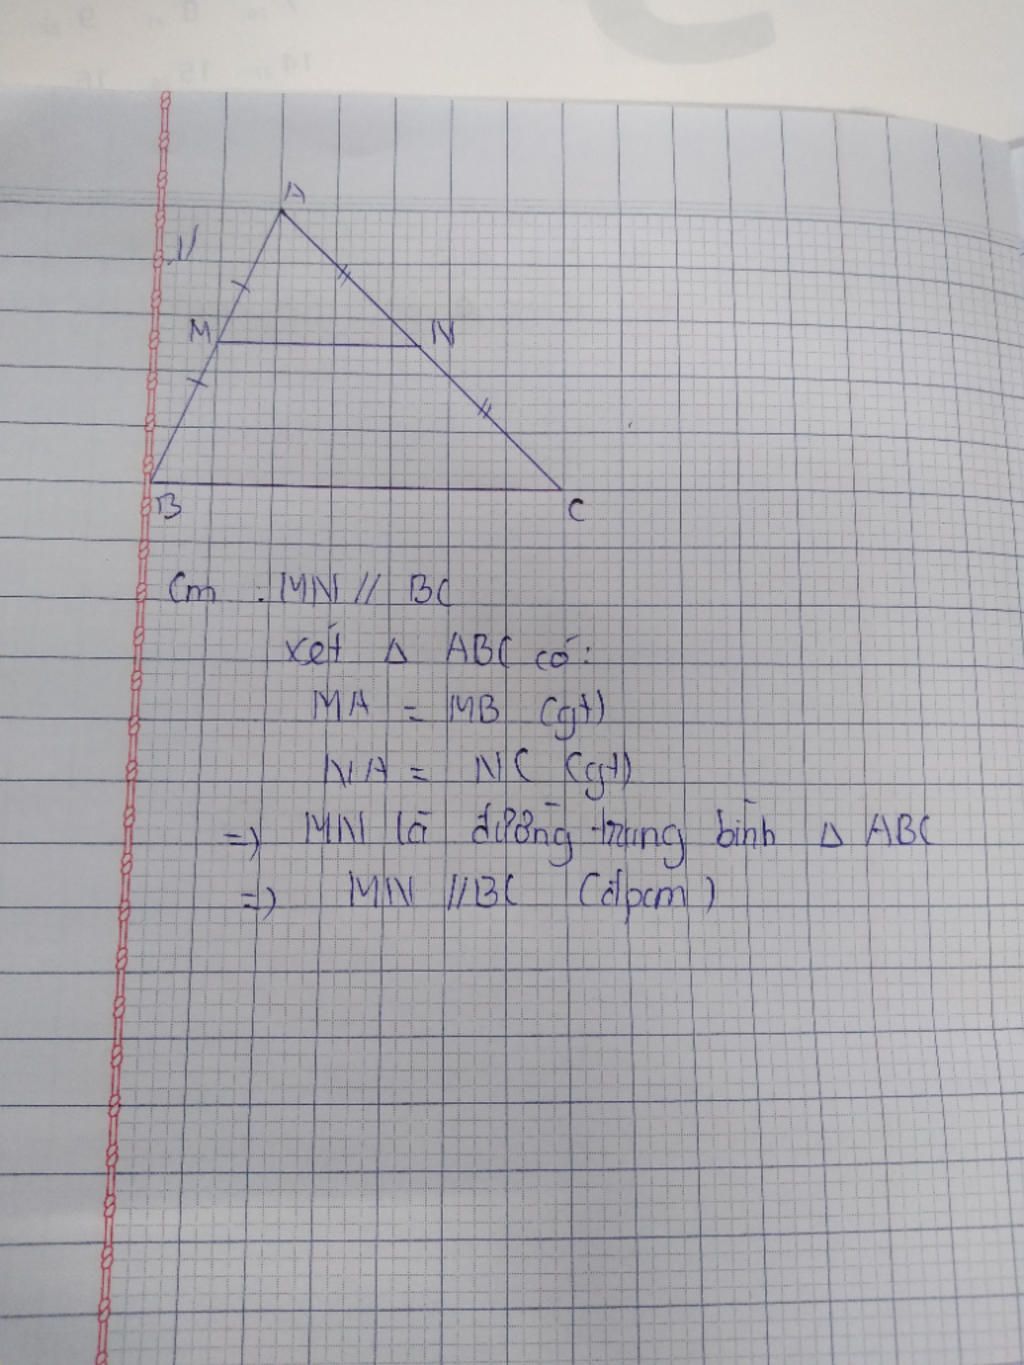 A
M
N
B
C
Cm : MN // BC
xét Δ ABC có:
MA = MB (gt)
NA = NC (gt)
=> MN là đường trung bình Δ ABC
=> MN // BC (đpcm)